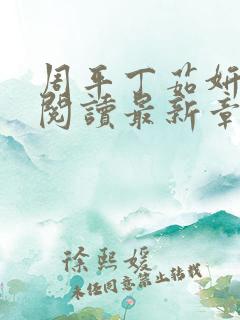 周平丁茹妍
閱讀最新章
徐熙媛
未经同意禁止转载